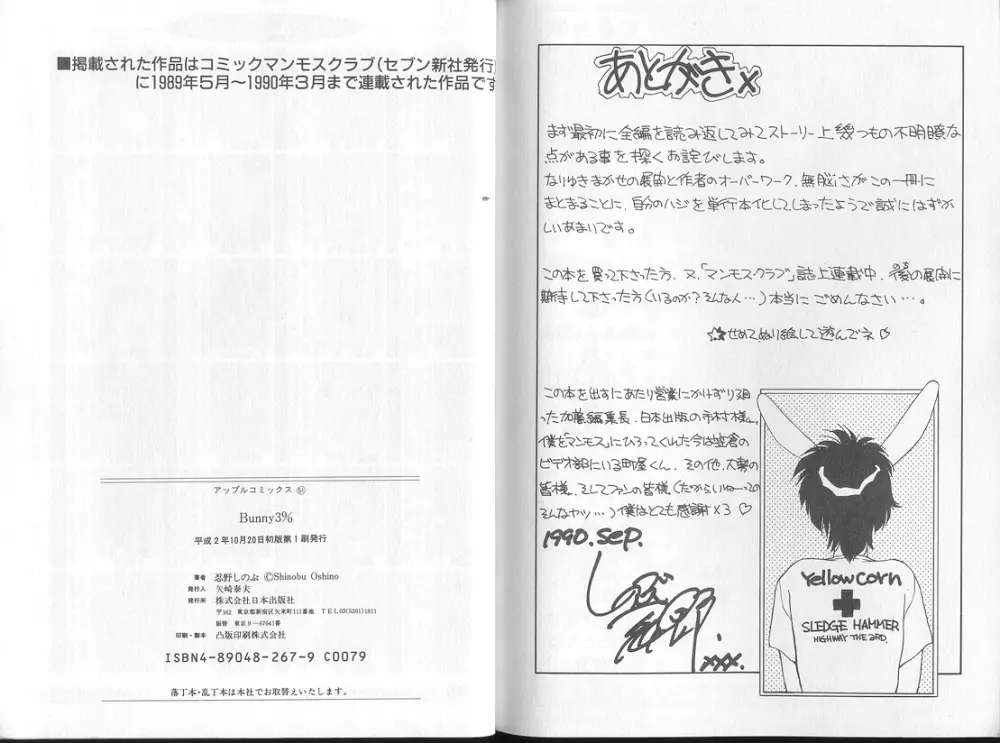 ■掲載された作品はコミックマンモスクラブ(セブン新社発行)
に1989年5月～1990年3月まで連載された作品です
アップルコミックス 51
Bunny3%
平成2年10月20日初版第1刷発行
著者 忍野しのぶ ©Shinobu Oshino
発行人 矢崎泰夫
発行所 株式会社日本出版社
〒162 東京都新宿区矢来町111番地 TEL03(5261)1811
振替 東京9-67641番
印刷・製本 凸版印刷株式会社
ISBN4-89048-267-9 C0079
落丁本・乱丁本は本社でお取替えいたします。
あとがきx
まず最初に全編を読み返してみてストーリー上幾つもの不明瞭な
点がある事を深くお詫びします。
なりゆきまかせの展開と作者のオーバーワーク、無脳さがこの一冊に
まとまることに、自分のハジを単行本化してしまったようで誠にはずか
しいあまりです。
この本を買って下さった方、又、「マンモス・クラブ」誌上連載中、後のちの展開に
期待して下さった方(いるのか?そんな人…)本当に ごめんなさい…。
☆せめてぬり絵して遊んでネ♡
この本を出すにあたり営業にかけずり回
った加藤編集長、日本出版の市村様、
僕を「マンモス」にひろってくれた今は笠倉の
ビデオ部にいる町屋くん、その他、大勢の
皆様、そしてファンの皆様(だからいねーっての
そんなヤツ…)僕はとても感謝×3♡
1990.sep.
しのぶ
忍野
xxx.
Yellow corn
SLEDGE HAMMER
HIGHWAY THE 3RD.